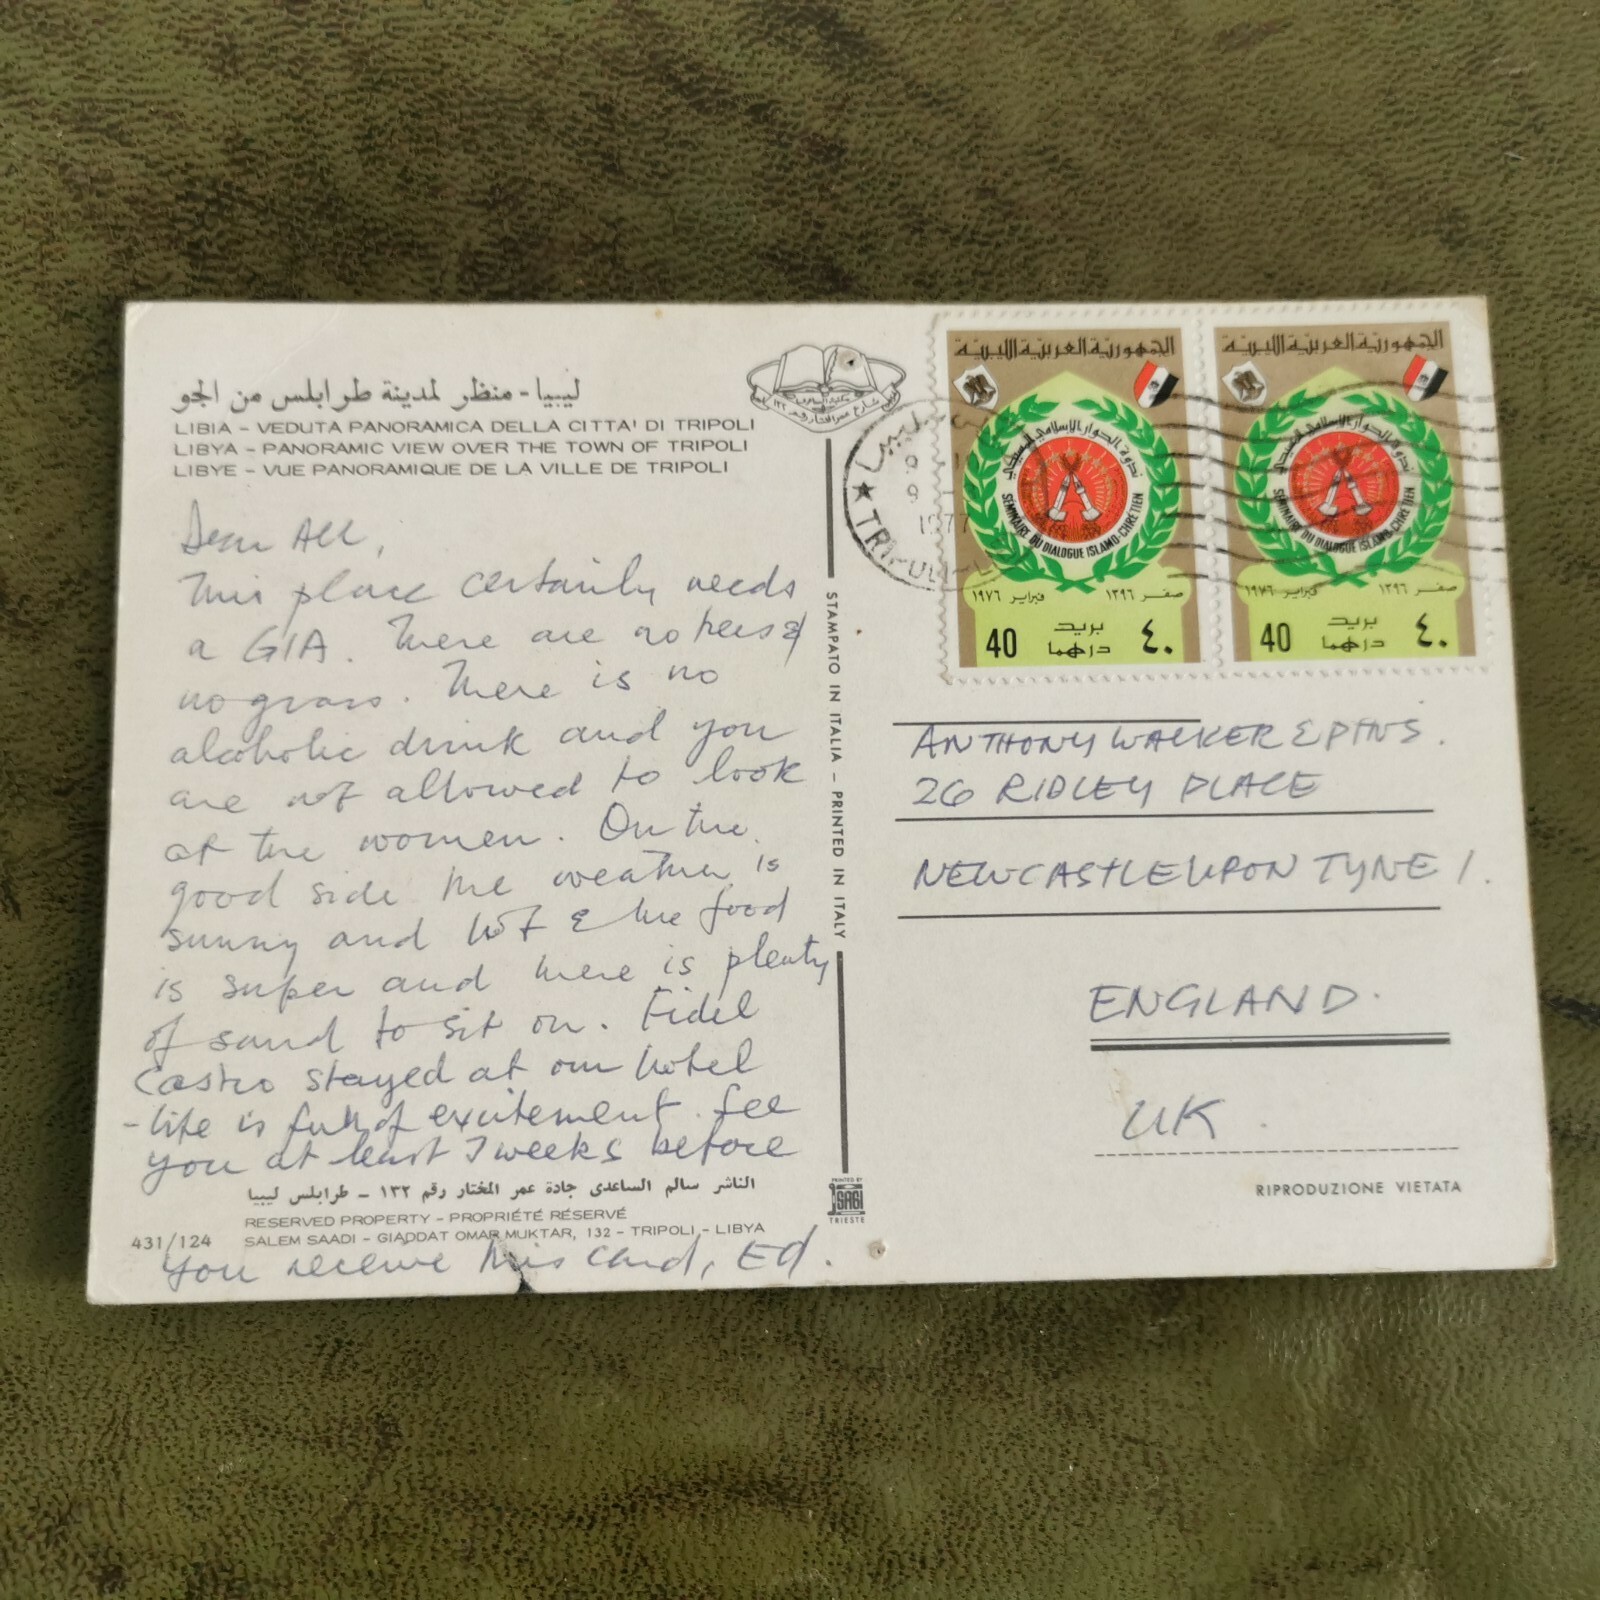 ليبيا - منظر لمدينة طرابلس من الجو
LIBIA – VEDUTA PANORAMICA DELLA CITTA' DI TRIPOLI
LIBYA – PANORAMIC VIEW OVER THE TOWN OF TRIPOLI
LIBYE – VUE PANORAMIQUE DE LA VILLE DE TRIPOLI
Dear All,
This place certainly needs
a GIA. There are no trees &
no grass. There is no
alcoholic drink and you
are not allowed to look
at the women. On the
good side the weather is
sunny and hot & the food
is super and there is plenty
of sand to sit on. Fidel
Castro stayed at our hotel
- life is full of excitement. See
you at least 3 weeks before
الناشر سالم الساعدى جادة عمر المختار رقم ١٣٢ – طرابلس ليبيا
RESERVED PROPERTY – PROPRIÉTÉ RÉSERVÉ
431/124 SALEM SAADI – GIADDAT OMAR MUKTAR, 132 – TRIPOLI – LIBYA
you receive this card, Ed.
STAMPATO IN ITALIA – PRINTED IN ITALY
PRINTED BY
SAGI
TRIESTE
ليبيا
1977
TRIPOLI
الجمهورية العربية الليبية
ندوة الحوار الاسلامي المسيحي
SEMINAIRE DU DIALOGUE ISLAMO-CHRETIEN
صفر ١٣٩٦ فبراير ١٩٧٦
40 بريد ٤٠
درهما
الجمهورية العربية الليبية
ندوة الحوار الاسلامي المسيحي
SEMINAIRE DU DIALOGUE ISLAMO-CHRETIEN
صفر ١٣٩٦ فبراير ١٩٧٦
40 بريد ٤٠
درهما
ANTHONY WALKER & PTNS.
26 RIDLEY PLACE
NEWCASTLE UPON TYNE 1.
ENGLAND.
UK.
RIPRODUZIONE VIETATA